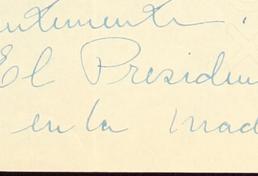 entemente.
El Presiden
en la Mad